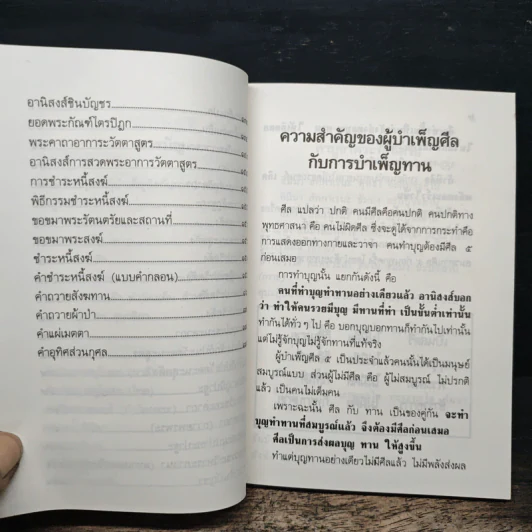 อานิสงส์ชินบัญชร
ยอดพระกัณฑ์ไตรปิฎก
พระคาถาอาการะวัตตาสูตร
อานิสงส์การสวดพระอาการวัตตาสูตร
การชำระหนี้สงฆ์
พิธีกรรมชำระหนี้สงฆ์
ขอขมาพระรัตนตรัยและสถานที่
ขอขมาพระสงฆ์
ชำระหนี้สงฆ์
คำชำระหนี้สงฆ์ (แบบคำกลอน)
คำถวายสังฆทาน
คำถวายผ้าป่า
คำแผ่เมตตา
คำอุทิศส่วนกุศล
ความสำคัญของผู้บำเพ็ญศีล
กับการบำเพ็ญทาน
ศีล แปลว่า ปกติ คนมีศีลคือคนปกติ คนปกติทาง
พุทธศาสนา คือ คนไม่ผิดศีล ซึ่งจะดูได้จากการกระทำคือ
การแสดงออกทางกายและวาจา คนทำบุญต้องมีศีล ๕
ก่อนเสมอ
การทำบุญนั้น แยกกันดังนี้ คือ
คนที่ทำบุญทำทานอย่างเดียวแล้ว อานิสงส์บอก
ว่า ทำให้คนรวยมีบุญ มีทานที่ทำ เป็นขั้นต่ำเท่านั้น
ทำกันได้ทั่วๆ ไป คือ บอกบุญบอกทานก็ทำกันไปเท่านั้น
แต่ไม่รู้จักบุญไม่รู้จักทานที่แท้จริง
ผู้บำเพ็ญศีล ๕ เป็นประจำแล้วคนนั้นได้เป็นมนุษย์
สมบูรณ์แบบ ส่วนผู้ไม่มีศีล คือ ผู้ไม่สมบูรณ์ ไม่ปรกติ
แล้ว เป็นคนไม่เต็มคน
เพราะฉะนั้น ศีล กับ ทาน เป็นของคู่กัน จะทำ
บุญทำทานที่สมบูรณ์แล้ว จึงต้องมีศีลก่อนเสมอ
ศีลเป็นการส่งผลบุญ ทาน ให้สูงขึ้น
ทำแต่บุญทานอย่างเดียวไม่มีศีลแล้ว ไม่มีพลังส่งผล